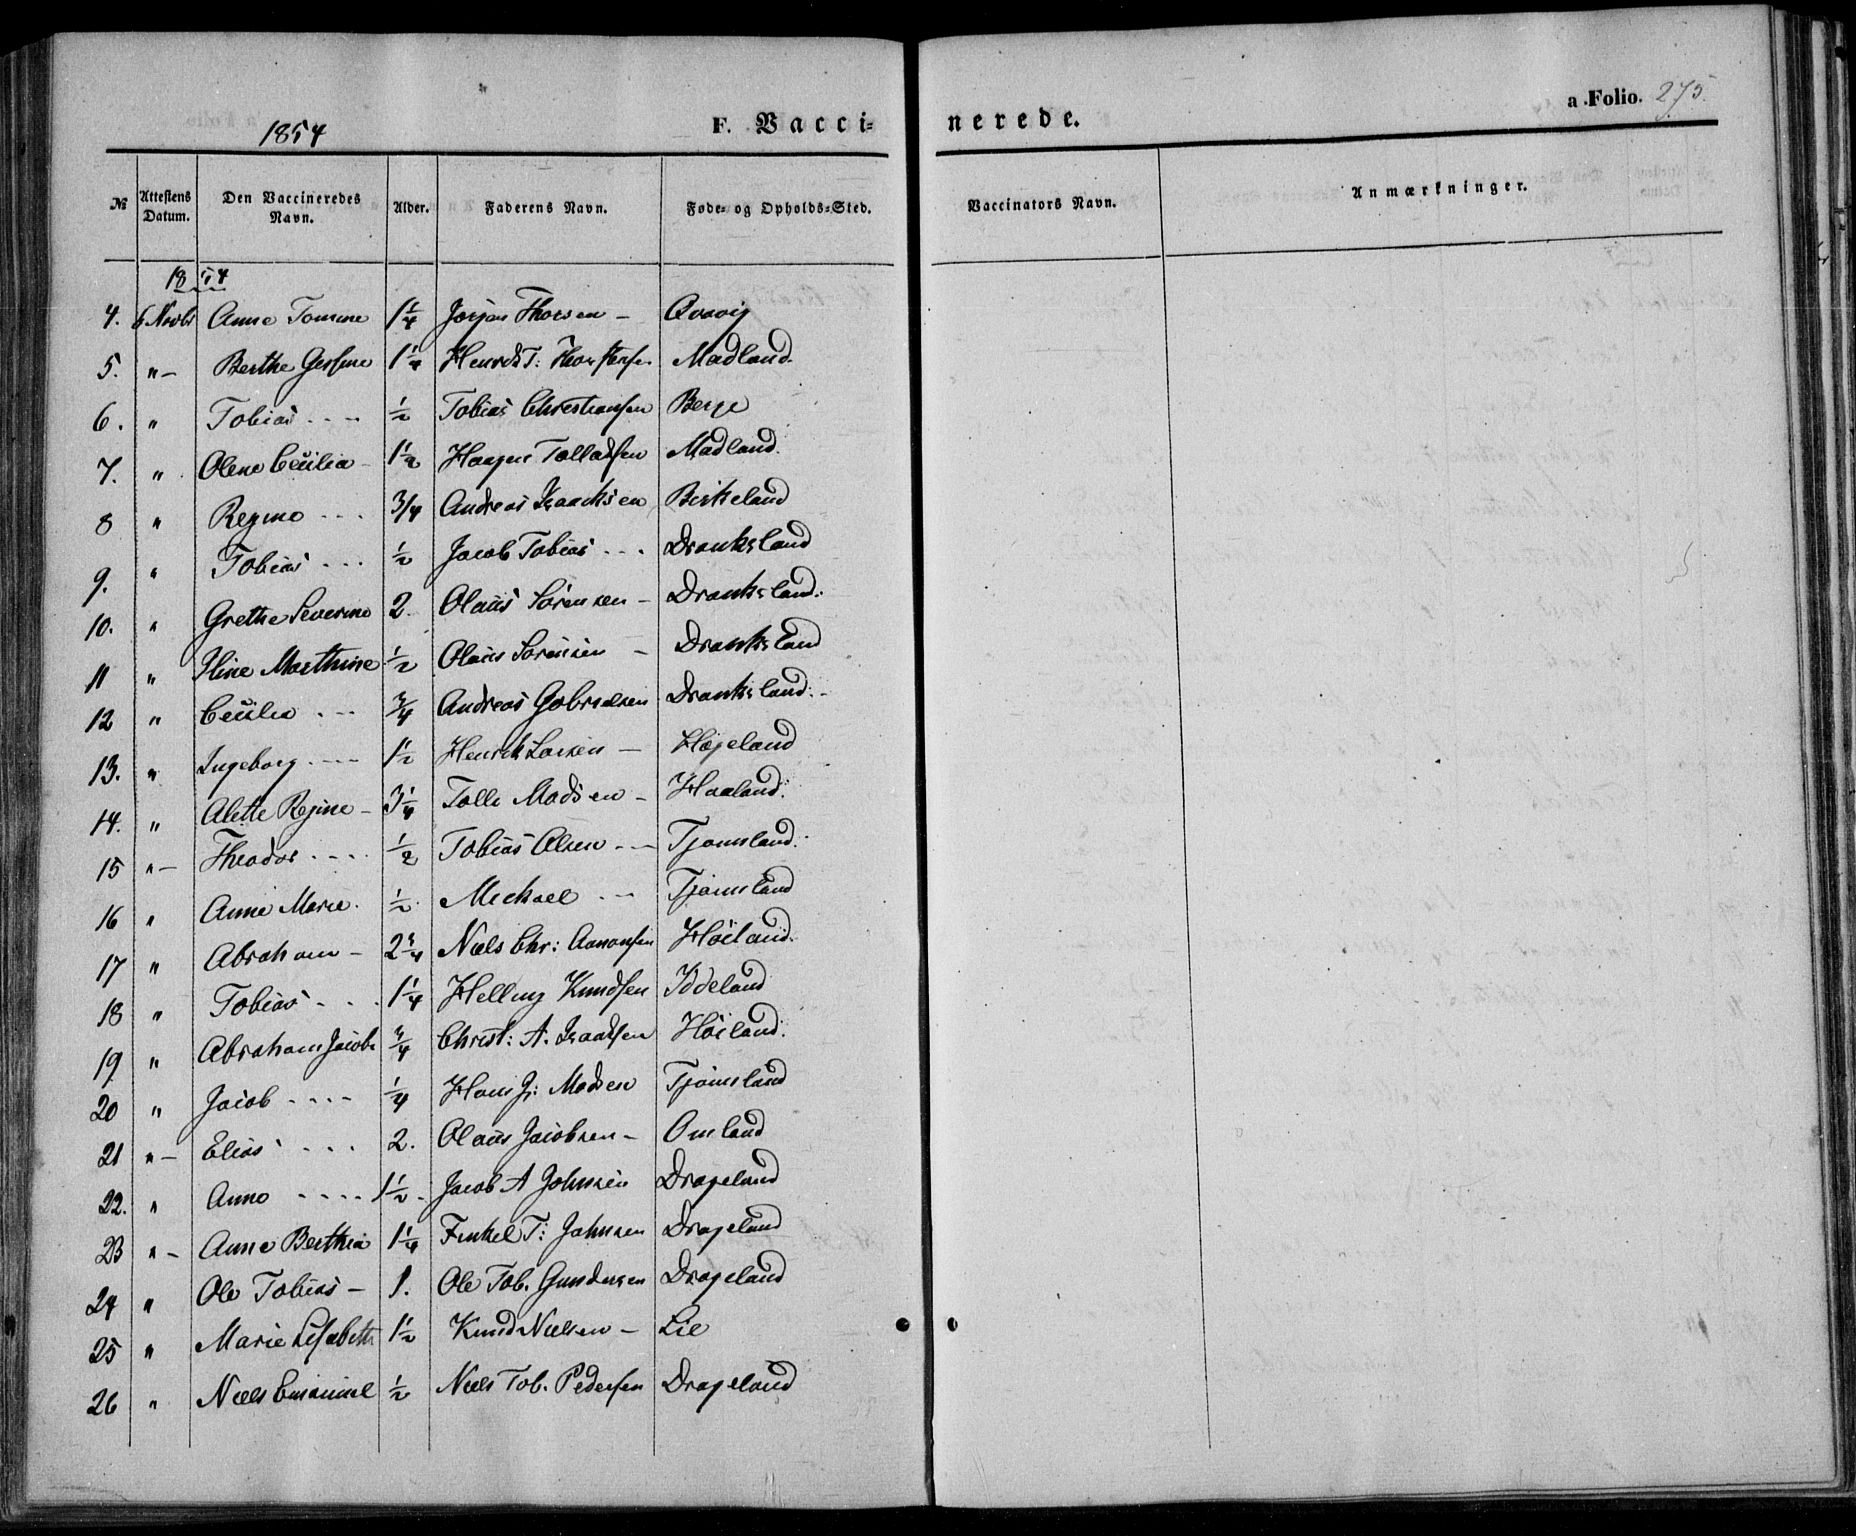 1854
F. Vacci-
nerede.
a Folio. 275.
№ Attestens Datum. Den Vaccineredes Navn. Alder. Faderens Navn. Føde- og Opholds-Sted. Vaccinators Navn. Anmærkninger.
1854
4. 6 Novbr Anne Tomine 1 1/4 Jørgen Thorsen - Qvavig
5. " - Berthe Gesine 1 1/4 Henrik T: Madland
6. " Tobias 1/2 Tobias Christiansen Berge
7. " Olene Cecilia 1 1/2 Haagen Tolladsen Madland.
8 " Regine 3/4 Andreas Isaacksen Birkeland
9. " Tobias 1/2 Jacob Tobias Dranksland
10. " Grethe Severine 2. Olaus Sørensen - Dranksland.
11 " Marthine 1/2 Olaus Sørensen - Dranksland
12 " Cecilia 3/4 Andreas Gabrielsen Dranksland.
13. " Ingeborg 1 1/2 Henrik Larsen - Hægeland
14. " Alette Regine - 3 1/4 Tolle Madsen - Haaland.
15 " - Theodor 1/2 Tobias Olsen Tjomsland.
16 " Anne Marie. 1/2 Michael Tjomsland
17 " Abraham - 2 3/4 Niels Chr: Aanonsen Høiland.
18 " Tobias 1 1/4 Helling Knudsen Iddeland
19 " Abraham Jacob 3/4 Christ: A. Isaaksen Høiland.
20 " Jacob 1/4 Hans J: Madsen Tjomsland
21 " - Elias 2. Olaus Jacobsen - Omland
22. " Anne 1 1/2 Jacob A Johnsen Drageland
23 " - Anne Berthea 1 1/4 Tenkel T: Johnsen Drageland
24 " Ole Tobias - 1. Ole Tob. Gundersen Drageland
25 " Marie Lisabeth 1 1/2 Knud Nielsen - Lie
26 " Niels Emanuel 1/2 Niels Tob. Pedersen Drageland